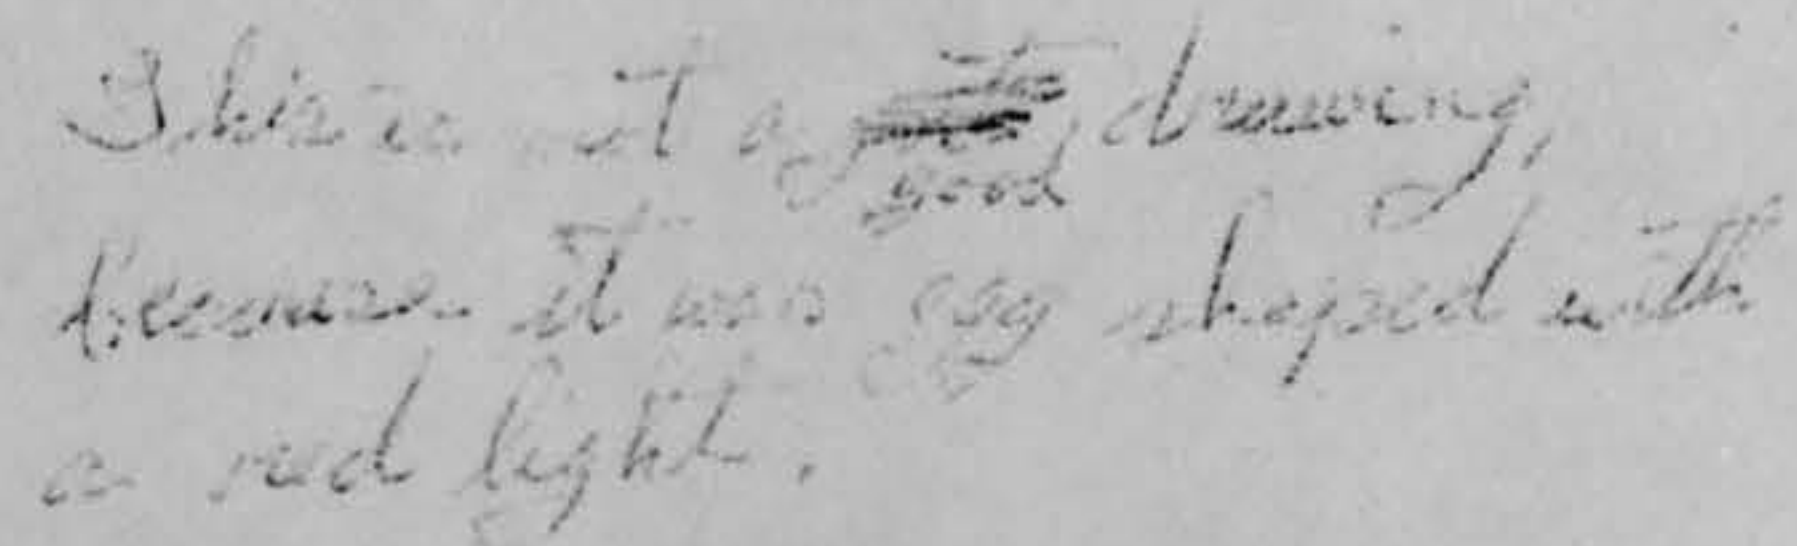 This is not a good drawing,
because it was egg shaped with
a red light.